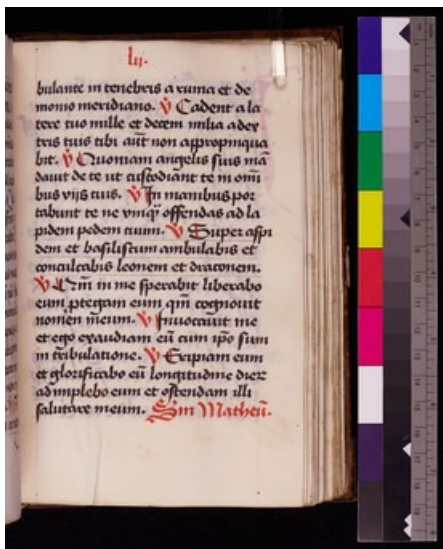 lij.
bulante in tenebris a ruina et de
monio meridiano. ℣ Cadent a la
tere tuo mille et decem milia a dex
tris tuis tibi aūt non appropinqua
bit. ℣ Quoniam angelis suis mā
dauit de te ut custodiant te in omī
bus vijs tuis. ℣ In manibus por
tabunt te ne vnqȝ offendas ad la
pidem pedem tuum. ℣ Super aspi
dem et basiliscum ambulabis et
conculcabis leonem et draconem.
℣ Qm̄ in me sperabit liberabo
eum ptegam eum qm̄ cognouit
nomen meum. ℣ Inuocauit me
et ego exaudiam eū cum ip̄o sum
in tribulatione. ℣ Eripiam eum
et glorificabo eū longitudine dierꝝ
adimplebo eum et ostendam illi
salutare meum. Sm̄ Matheū.